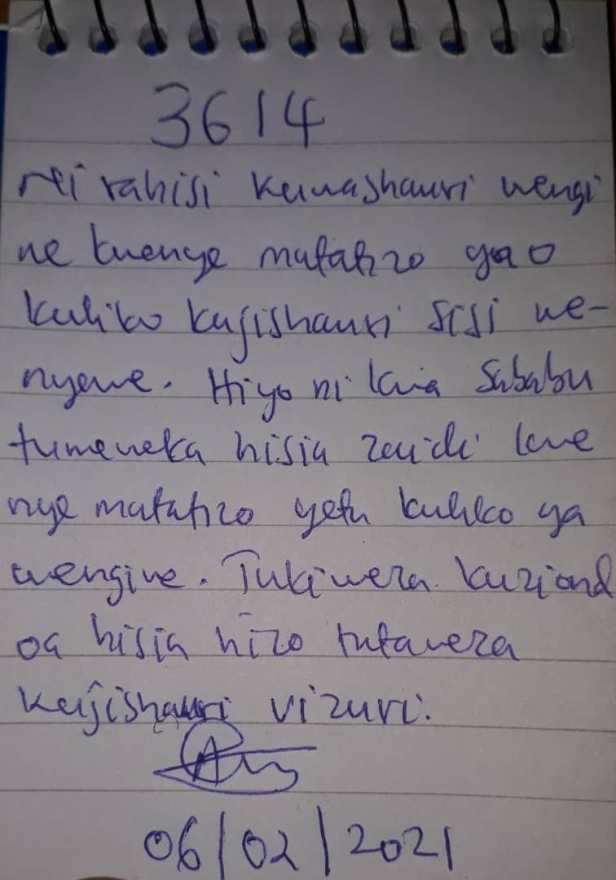 3614
Ni rahisi kuwashauri wengi
ne kwenye matatizo yao
kuliko kujishauri sisi we-
nyewe. Hiyo ni kwa sababu
tumeweka hisia zaidi kwe
nye matatizo yetu kuliko ya
wengine. Tukiweza kuziond
oa hisia hizo tutaweza
kujishauri vizuri.
06/02/2021